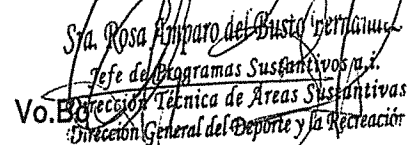 Sra. Rosa Amparo del Busto
Jefe de Programas Sustantivos a.i.
Vo.Bo. Dirección Técnica de Areas Sustantivas
Dirección General del Deporte y la Recreación